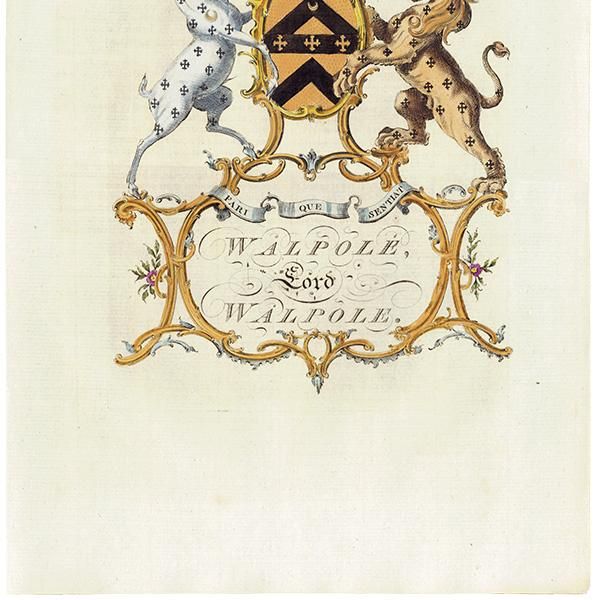 FARI QUE SENTIAT
WALPOLE,
Lord
WALPOLE.